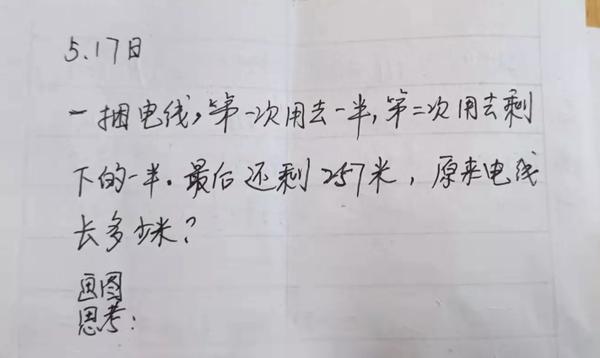 5.17日
一捆电线,第一次用去一半,第二次用去剩
下的一半。最后还剩257米,原来电线
长多少米?
画图
思考: